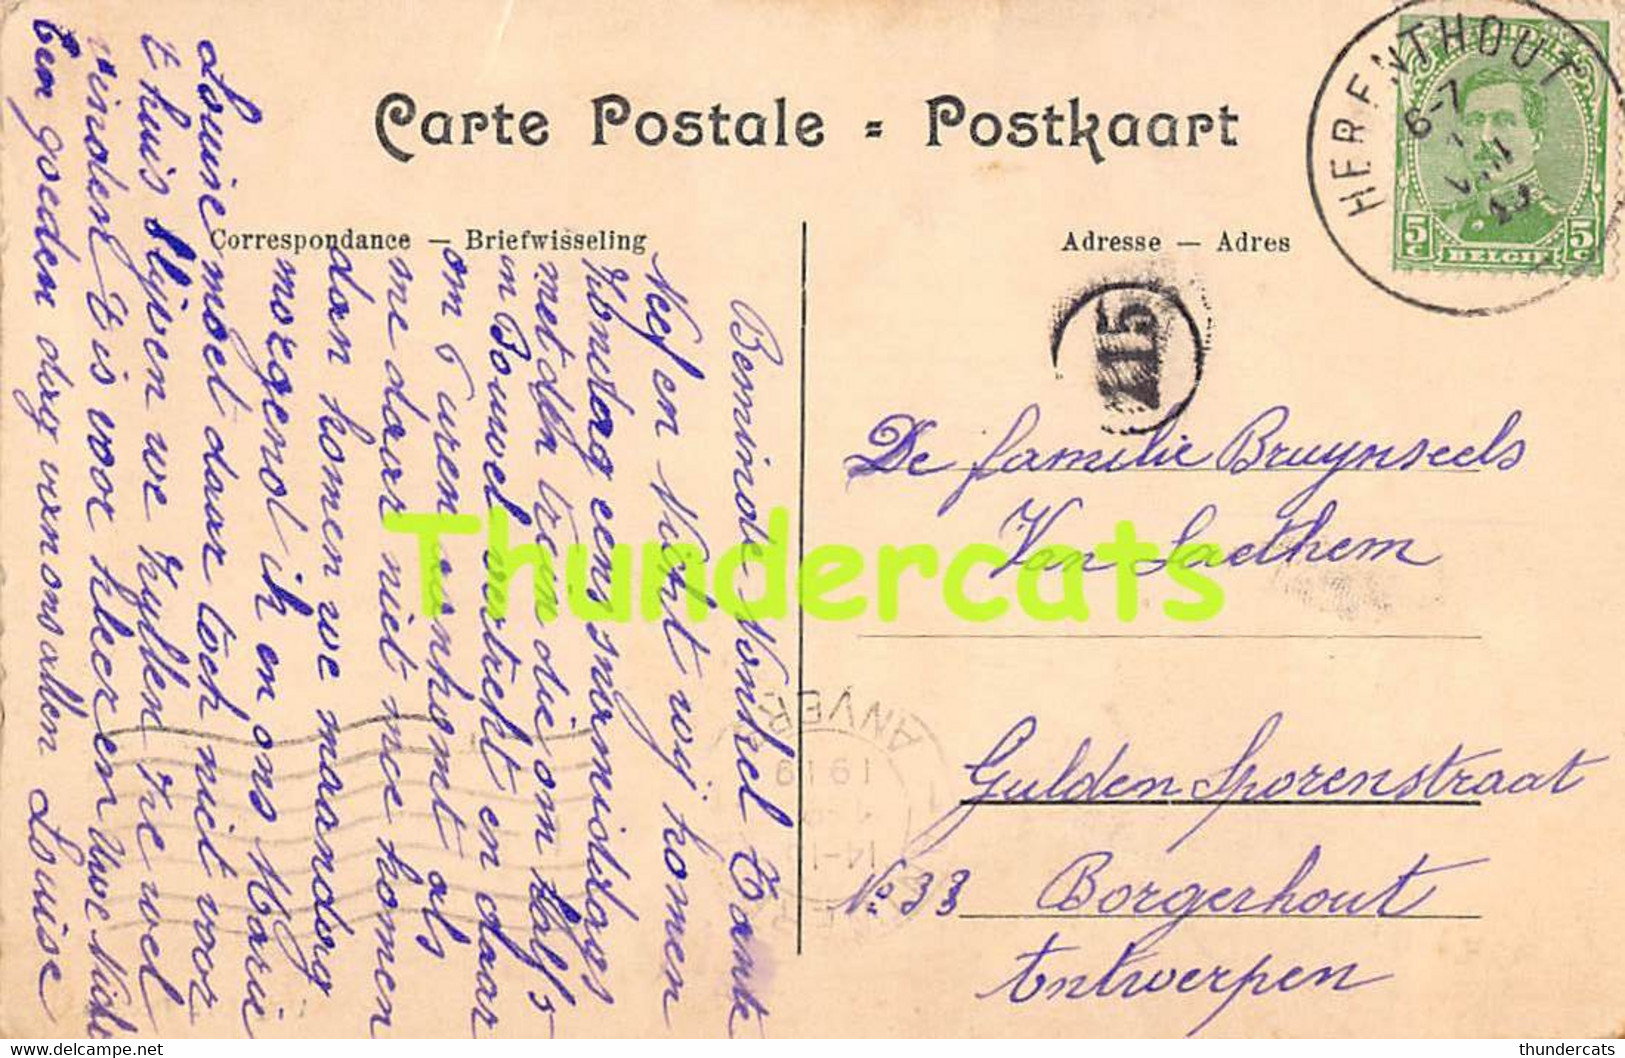 Carte Postale = Postkaart
Correspondance — Briefwisseling
Adresse — Adres
HERENTHOUT
6-7
5c 5c
BELGIE
115
Beminde Nonkel Tante
Nef en Nicht wij komen
Zondag eens snamiddags
met den trein die om half 5
in Bouwel vertrekt en daar
om 6 uren aankomt als
me daar niet mee komen
dan komen we maandag
morgend ik en ons Marie
Louise moet daar toch niet voor
t huis blijven we zullen die wel
vinden t is voor kleeren Uwe Nicht
een goeden dag van ons allen Louise
De familie Bruynseels
Van Laethem
Gulden Sporenstraat
No 33 Borgerhout
Antwerpen
ANVER
1919
14-1
Thundercats
thundercats
delcampe.net